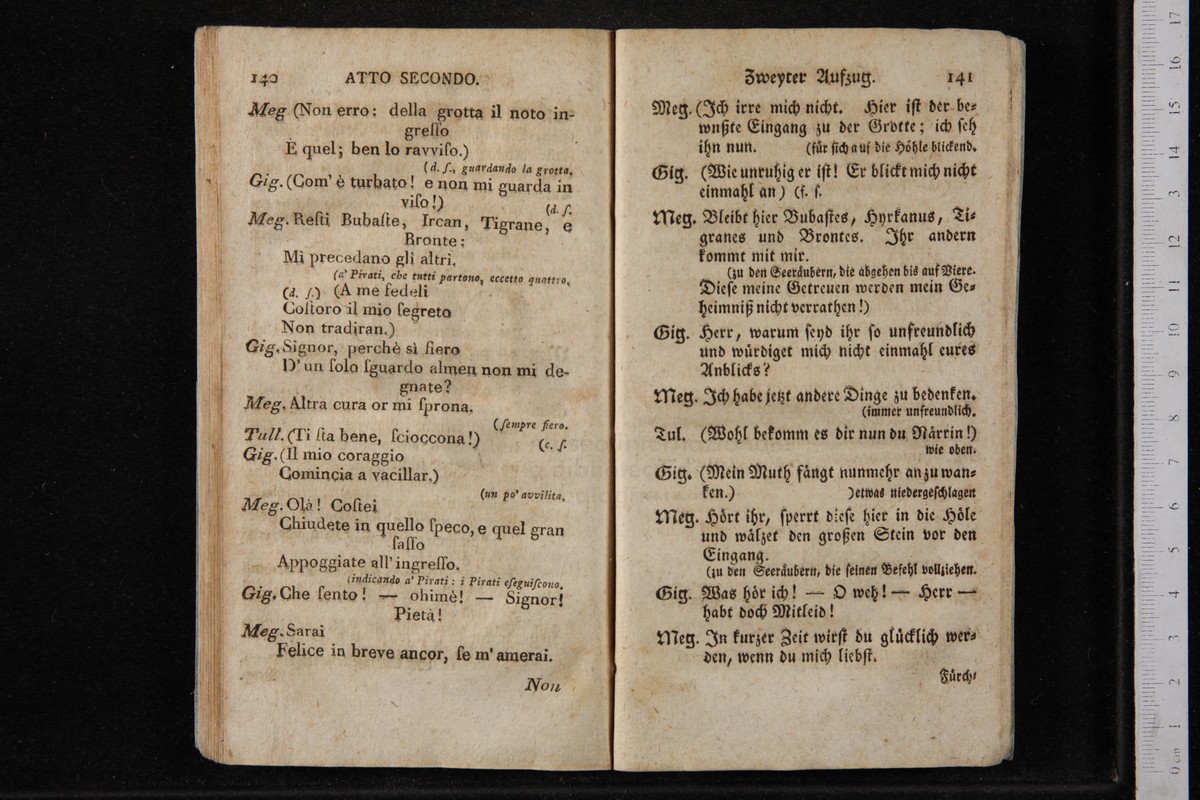 140 ATTO SECONDO.
Meg (Non erro: della grotta il noto in-
greſſo
È quel; ben lo ravviſo.)
(d. ſ., guardando la grotta.
Gig. (Com' è turbato! e non mi guarda in
viſo!) (d. ſ.
Meg. Reſti Bubaſte, Ircan, Tigrane, e
Bronte:
Mi precedano gli altri.
(a' Pirati, che tutti partono, eccetto quattro.
(d. ſ.) (A me fedeli
Coſtoro il mio ſegreto
Non tradiran.)
Gig. Signor, perchè sì fiero
D' un ſolo ſguardo almen non mi de-
gnate?
Meg. Altra cura or mi ſprona.
(ſempre fiero.
Tull. (Ti ſta bene, ſcioccona!) (c. ſ.
Gig. (Il mio coraggio
Comincia a vacillar.)
(un po' avvilita.
Meg. Olà! Coſtei
Chiudete in quello ſpeco, e quel gran
ſaſſo
Appoggiate all' ingreſſo.
(indicando a' Pirati: i Pirati eſeguiſcono.
Gig. Che ſento! — ohimè! — Signor!
Pietà!
Meg. Sarai
Felice in breve ancor, ſe m' amerai.
Non
Zweyter Aufzug. 141
Meg. (Ich irre mich nicht. Hier iſt der be⸗
wußte Eingang zu der Grotte; ich ſeh
ihn nun. (für ſich auf die Höhle blickend.
Gig. (Wie unruhig er iſt! Er blickt mich nicht
einmahl an) (f. ſ.
Meg. Bleibt hier Bubaſtes, Hyrkanus, Ti⸗
granes und Brontes. Ihr andern
kommt mit mir.
(zu den Seeräubern, die abgehen bis auf Viere.
Dieſe meine Getreuen werden mein Ge⸗
heimniß nicht verrathen!)
Gig. Herr, warum ſeyd ihr ſo unfreundlich
und würdiget mich nicht einmahl eures
Anblicks?
Meg. Ich habe jetzt andere Dinge zu bedenken.
(immer unfreundlich.
Tul. (Wohl bekomm es dir nun du Närrin!)
wie oben.
Gig. (Mein Muth fängt nunmehr an zu wan⸗
ken.) )etwas niedergeſchlagen
Meg. Hört ihr, ſperrt dieſe hier in die Höle
und wälzet den großen Stein vor den
Eingang.
(zu den Seeräubern, die ſeinen Befehl vollziehen.
Gig. Was hör ich! — O weh! — Herr —
habt doch Mitleid!
Meg. In kurzer Zeit wirſt du glücklich wer⸗
den, wenn du mich liebſt.
Fürch⸗